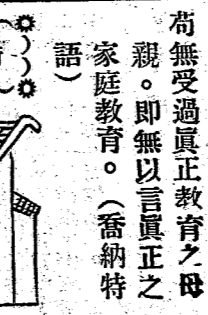 苟無受過眞正教育之母
親。即無以言眞正之
家庭教育。（喬納特
語）